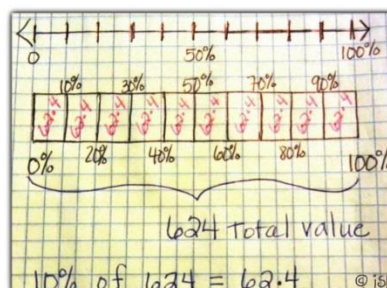 0 50% 100%
10% 30% 50% 70% 90%
62.4 62.4 62.4 62.4 62.4 62.4 62.4 62.4 62.4 62.4
0% 20% 40% 60% 80% 100%
624 Total value
10% of 624 = 62.4